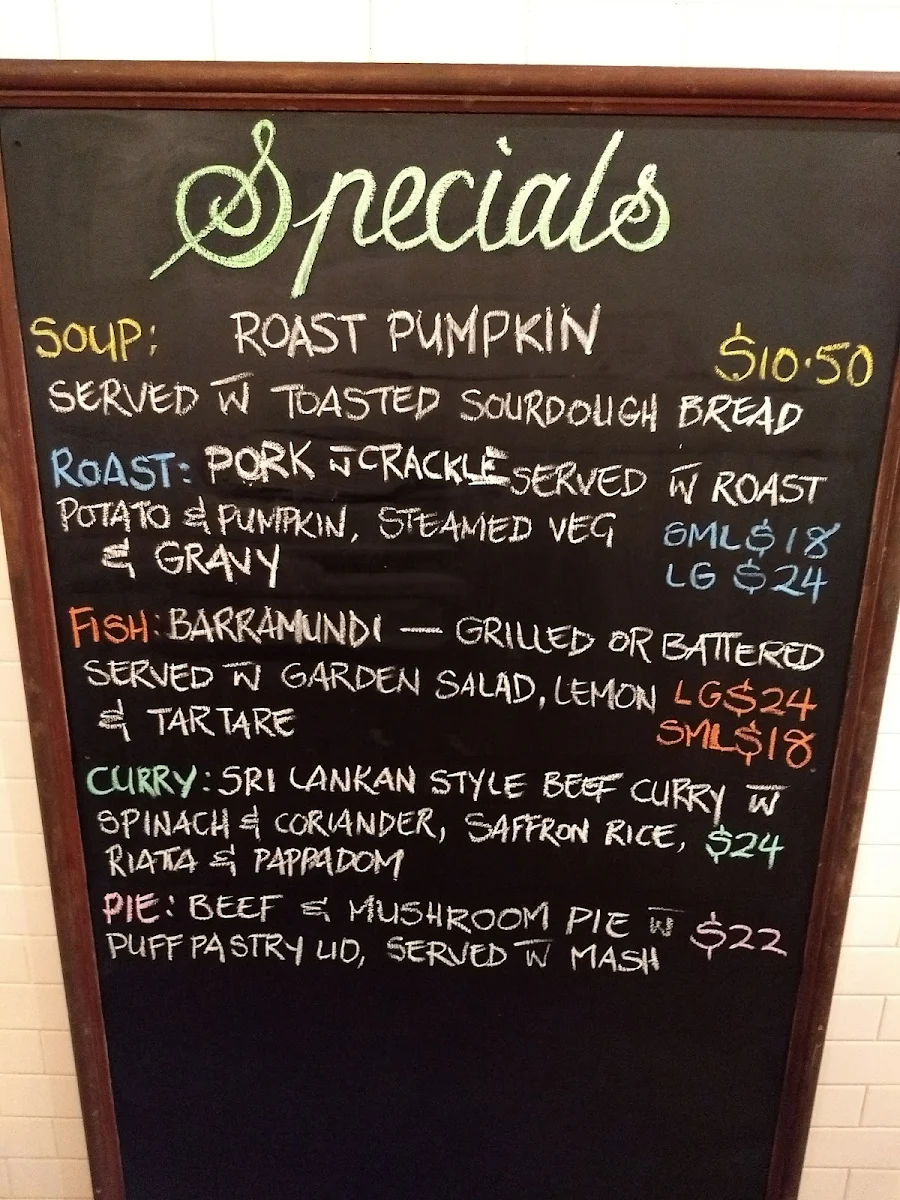 Specials
SOUP: ROAST PUMPKIN $10.50
SERVED W̅ TOASTED SOURDOUGH BREAD
ROAST: PORK N CRACKLE SERVED W̅ ROAST
POTATO & PUMPKIN, STEAMED VEG SML $18
& GRAVY LG $24
FISH: BARRAMUNDI — GRILLED OR BATTERED
SERVED W̅ GARDEN SALAD, LEMON LG $24
& TARTARE SML $18
CURRY: SRI LANKAN STYLE BEEF CURRY W̅
SPINACH & CORIANDER, SAFFRON RICE, $24
RIATA & PAPPADOM
PIE: BEEF & MUSHROOM PIE W̅ $22
PUFF PASTRY LID, SERVED W̅ MASH